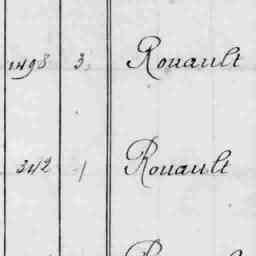 1498 3 Rouault
342 1 Rouault